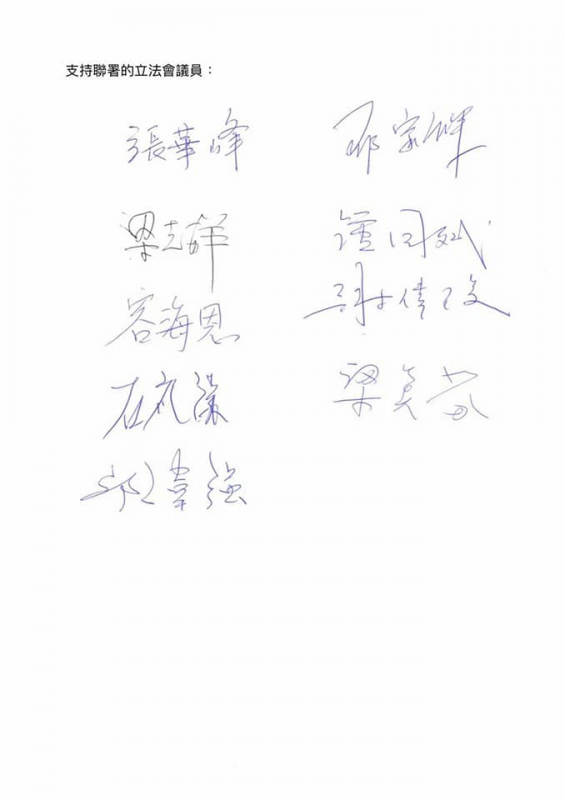 支持聯署的立法會議員：
張華峰
邵家輝
梁志祥
鍾国斌
容海恩
謝偉俊
石礼謙
梁美芬